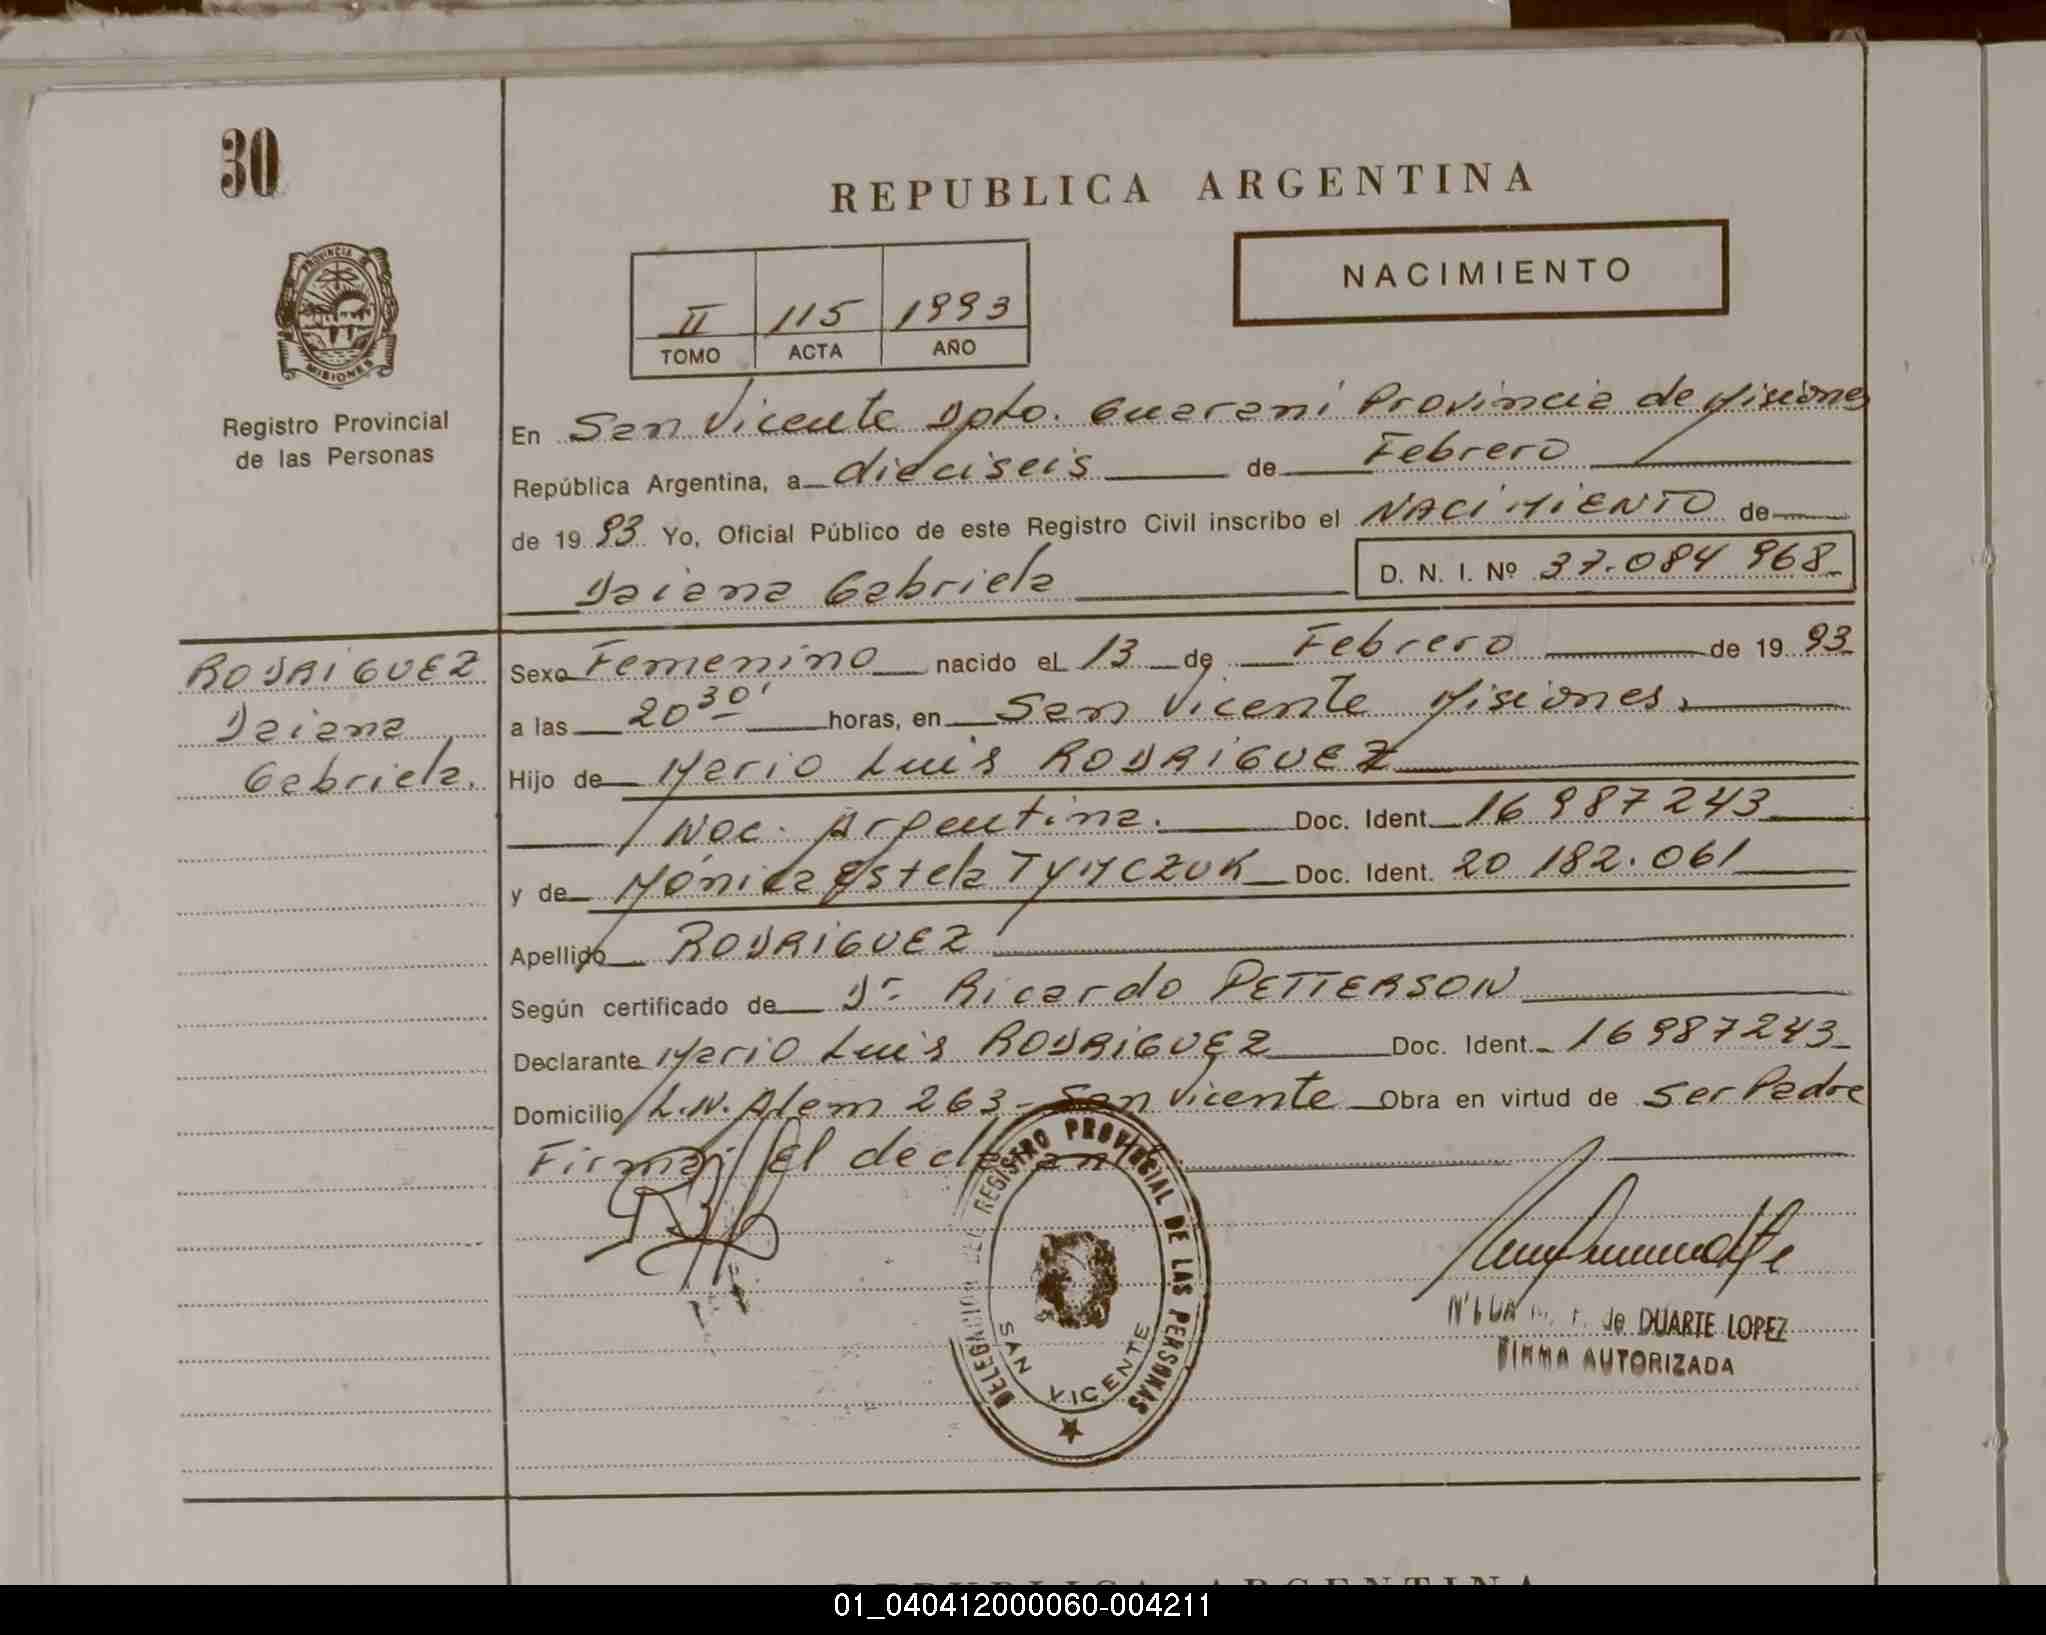 30
REPUBLICA ARGENTINA
NACIMIENTO
II 115 1993
TOMO ACTA AÑO
PROVINCIA DE
MISIONES
Registro Provincial
de las Personas
En San Vicente Dpto. Guaraní Provincia de Misiones
República Argentina, a dieciseis de Febrero
de 1993 Yo, Oficial Público de este Registro Civil inscribo el NACIMIENTO de
Daiana Gabriela D. N. I. Nº 37.084 968
RODRIGUEZ
Daiana
Gabriela.
Sexo Femenino nacido el 13 de Febrero de 1993
a las 20 30' horas, en San Vicente Misiones.
Hijo de Mario Luis RODRIGUEZ
Nac. Argentina. Doc. Ident. 16 987243
y de Mónica Estela TYMCZUK Doc. Ident. 20 182.061
Apellido RODRIGUEZ
Según certificado de Dr. Ricardo PETTERSON
Declarante Mario Luis RODRIGUEZ Doc. Ident. 16 987243
Domicilio L.N. Alem 263 - San Vicente Obra en virtud de ser Padre
Firma: El declarante
DELEGACION DEL REGISTRO PROVINCIAL DE LAS PERSONAS
SAN VICENTE
de DUARTE LOPEZ
FIRMA AUTORIZADA
REPUBLICA ARGENTINA
01_040412000060-004211